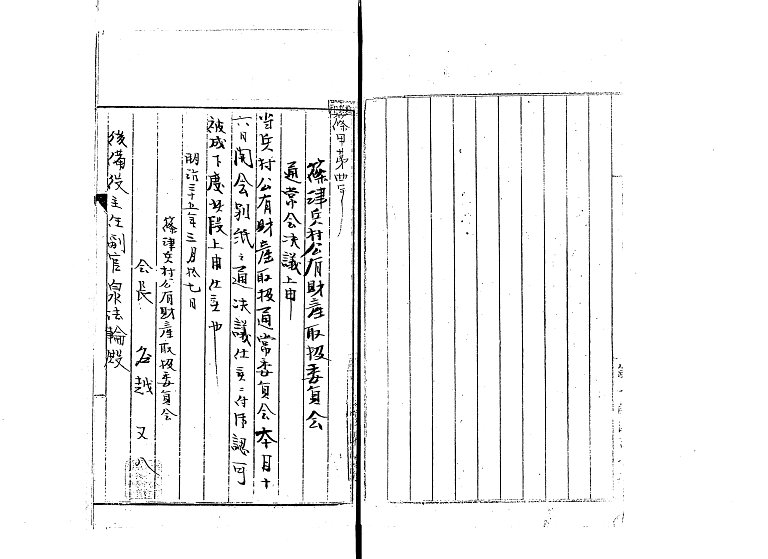 篠甲第四号
篠津兵村公有財産取扱委員会
通常会決議上申
当兵村公有財産取扱通常委員会本月十
六日開会別紙之通決議仕候ニ付御認可
被成下度此段上申仕候也
明治三十五年三月拾七日
篠津兵村公有財産取扱委員会
会長 名越又八
後備役主任副官泉法輪殿